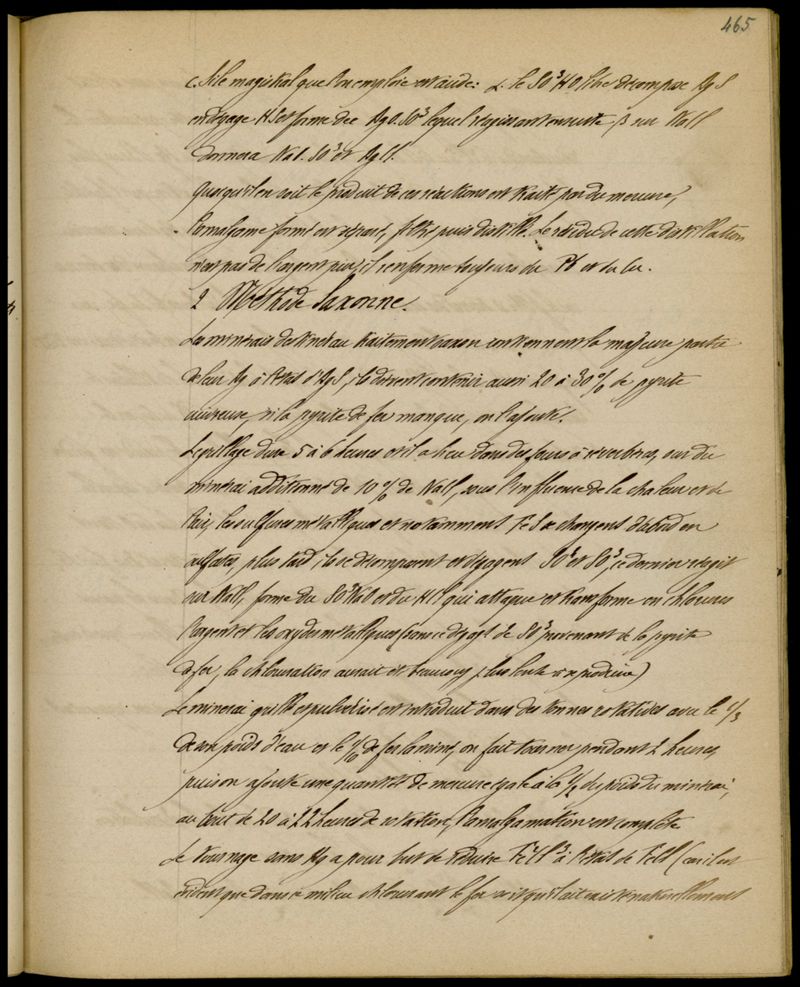 465
c. Si le magistral que l'on emploie est acide: α. le SO³HO libre décompose AgS
en dégage HS et forme de AgO.SO³ lequel réagissant ensuite β sur NaCl
donnera NaO.SO³ et AgCl.
Quoiqu'il en soit le produit de ces réactions est traité par du mercure,
l'amalgame formé est séparé, filtré puis distillé. Le résidu de cette distillation
n'est pas de l'argent pur, il renferme toujours du Pb et du Cu.
2 Méthode Saxonne.
Les minerais destinés au traitement saxon contiennent la majeure partie
de leur Ag à l'état d'AgS, ils doivent contenir aussi 20 à 30 % de pyrite
cuivreuse, si la pyrite de fer manque, on l'ajoute.
Le grillage dure 5 à 6 heures et il a lieu dans des fours à réverbères, sur du
minerai additionné de 10 % de NaCl, sous l'influence de la chaleur et de
l'air, les sulfures métalliques et notamment FeS se changent d'abord en
sulfates, plus tard, ils se décomposent et dégagent SO² et SO³, ce dernier réagit
sur NaCl, forme du SO³NaO et du HCl qui attaque et transforme en chlorures
l'argent et les oxydes métalliques (sans ce dégagt de SO³ provenant de la pyrite
de fer, la chloruration aurait été beaucoup plus lente à se produire)
Le minerai grillé et pulvérisé est introduit dans des tonnes rotatives avec le 1/3
de son poids d'eau et le 1/10 de fer laminé, on fait tourner pendant 2 heures,
puis on ajoute une quantité de mercure égale à la 1/2 du poids du minerai,
au bout de 20 à 22 heures de rotation, l'amalgamation est complète
Le tournage sans Hg a pour but de réduire Fe²Cl³ à l'état de FeCl (car il est
évident que dans ce milieu chlorurant le fer